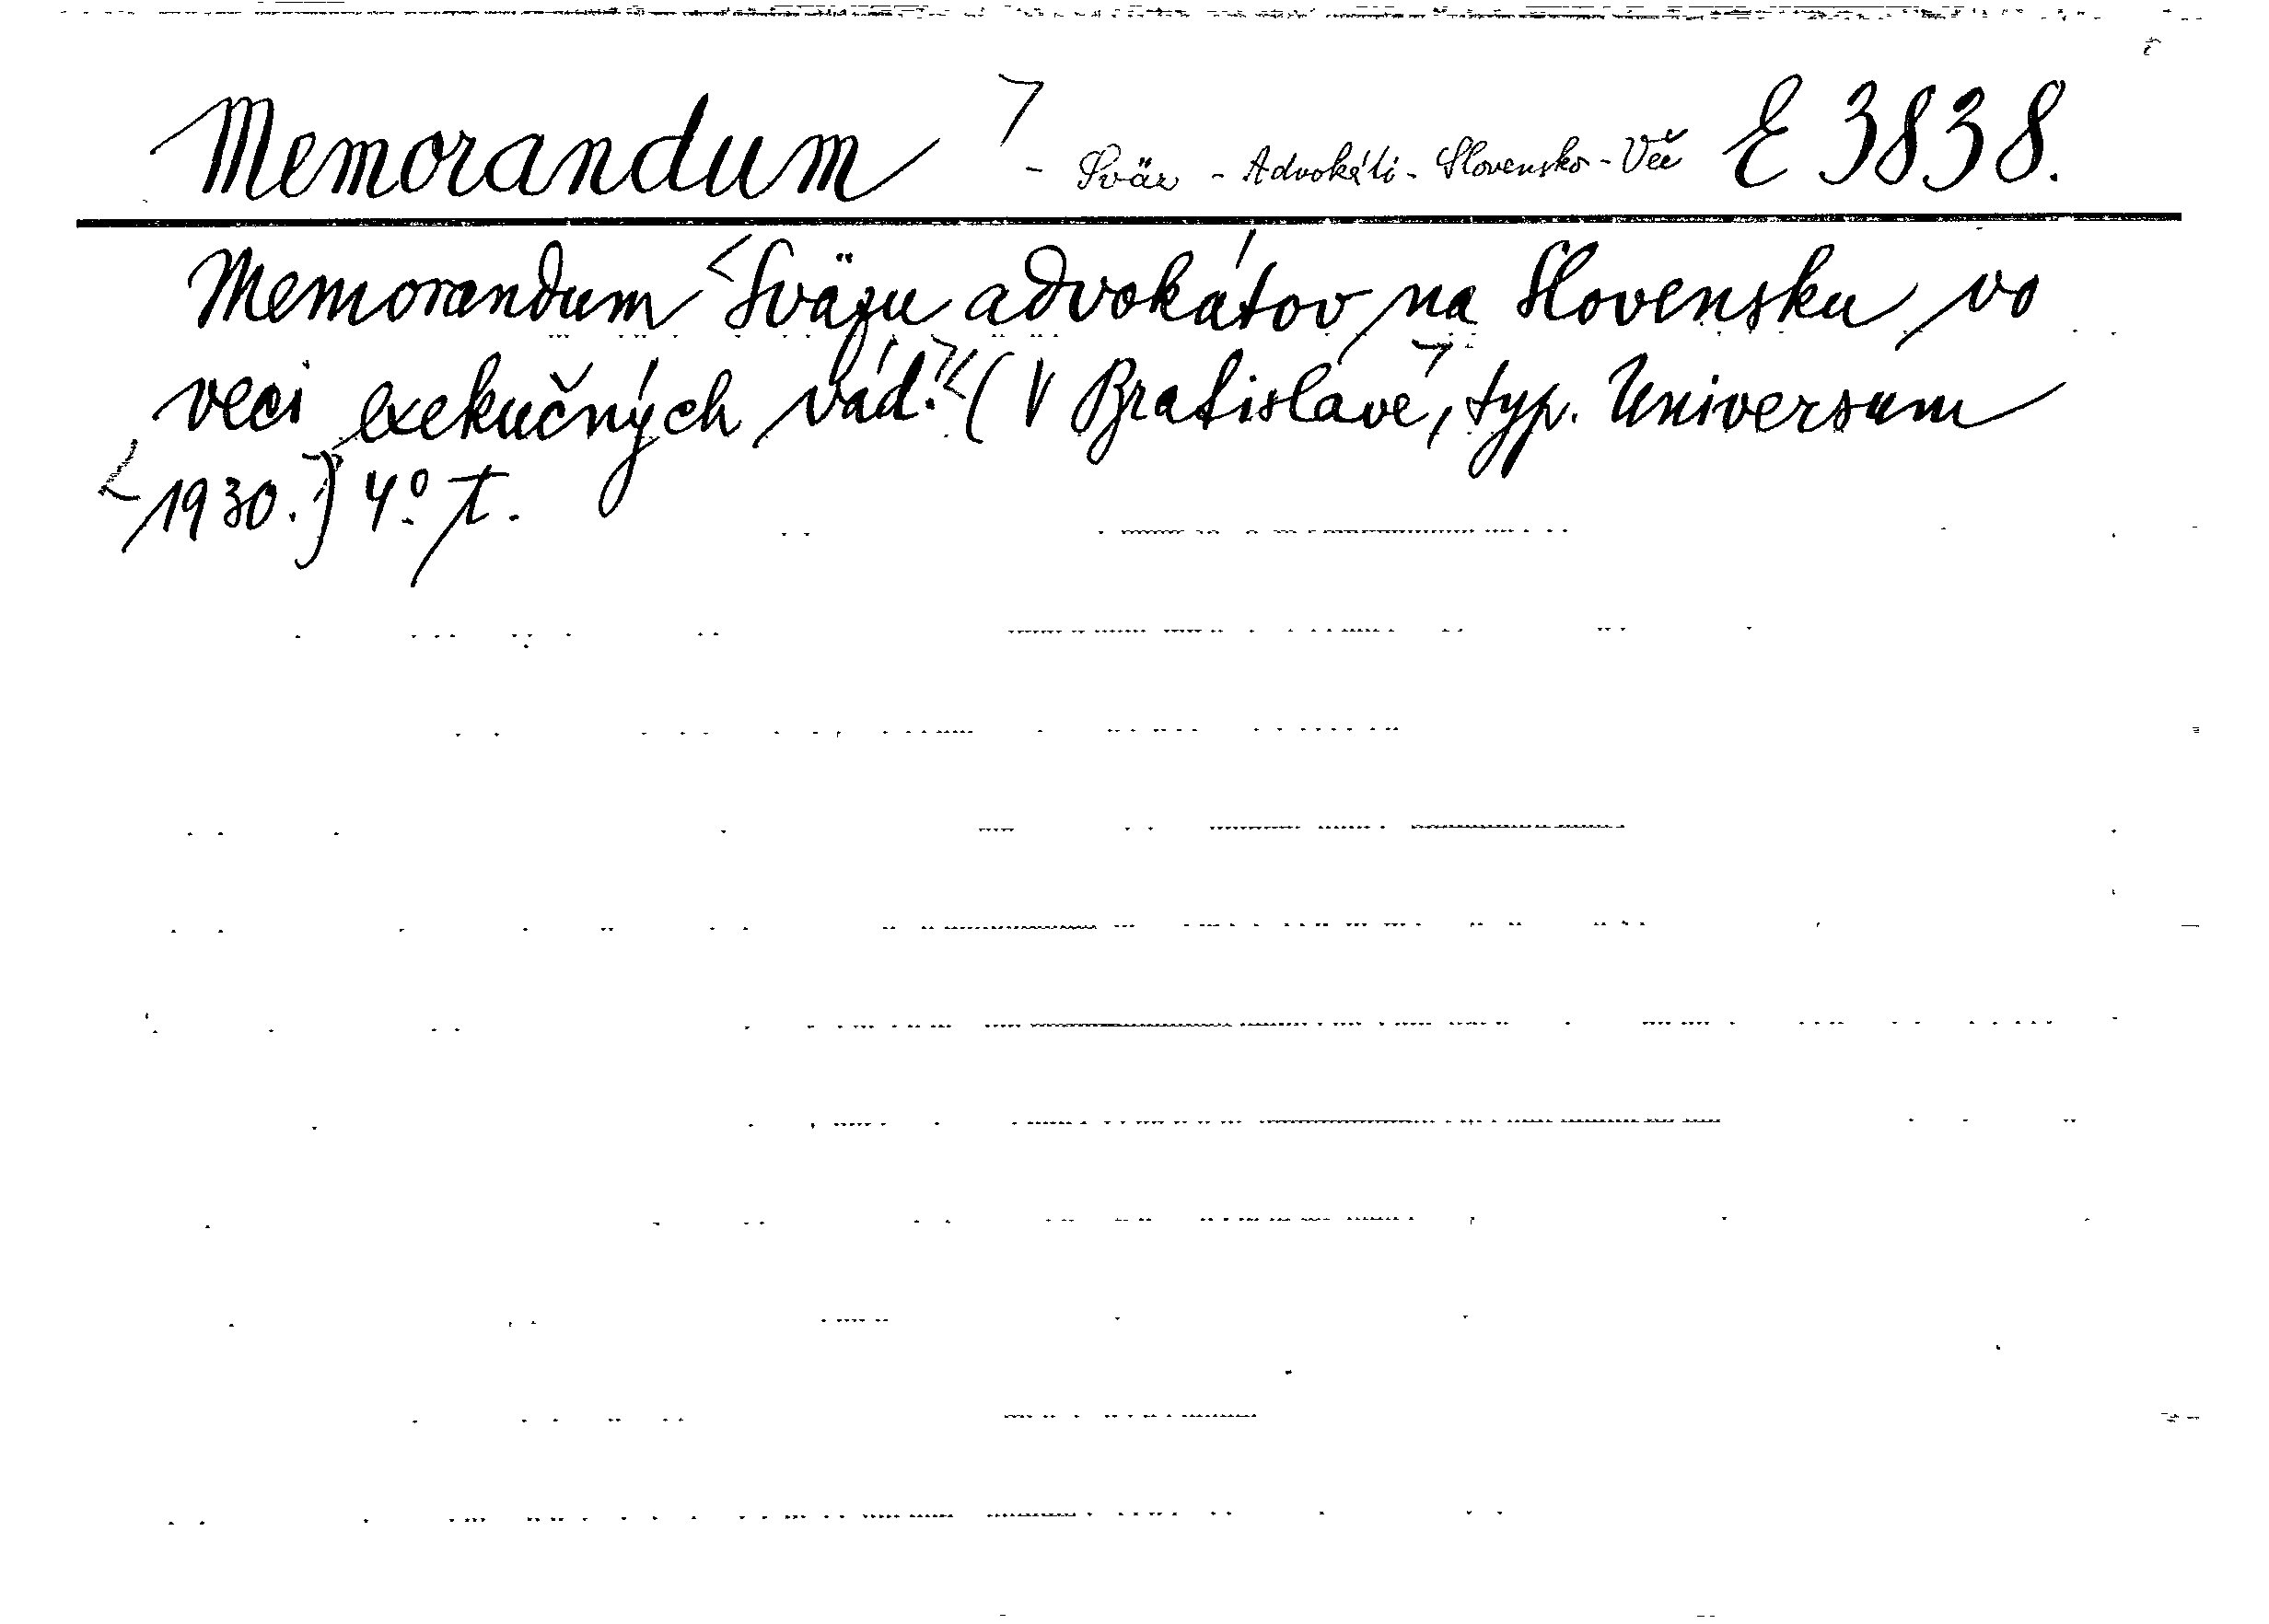 Memorandum - Sväz - Advokáti - Slovensko - Več E 3838.
Memorandum Sväzu advokátov na Slovensku vo
veci exekučných vád. (V Bratislave, typ. Universum
1930.) 4º. T.